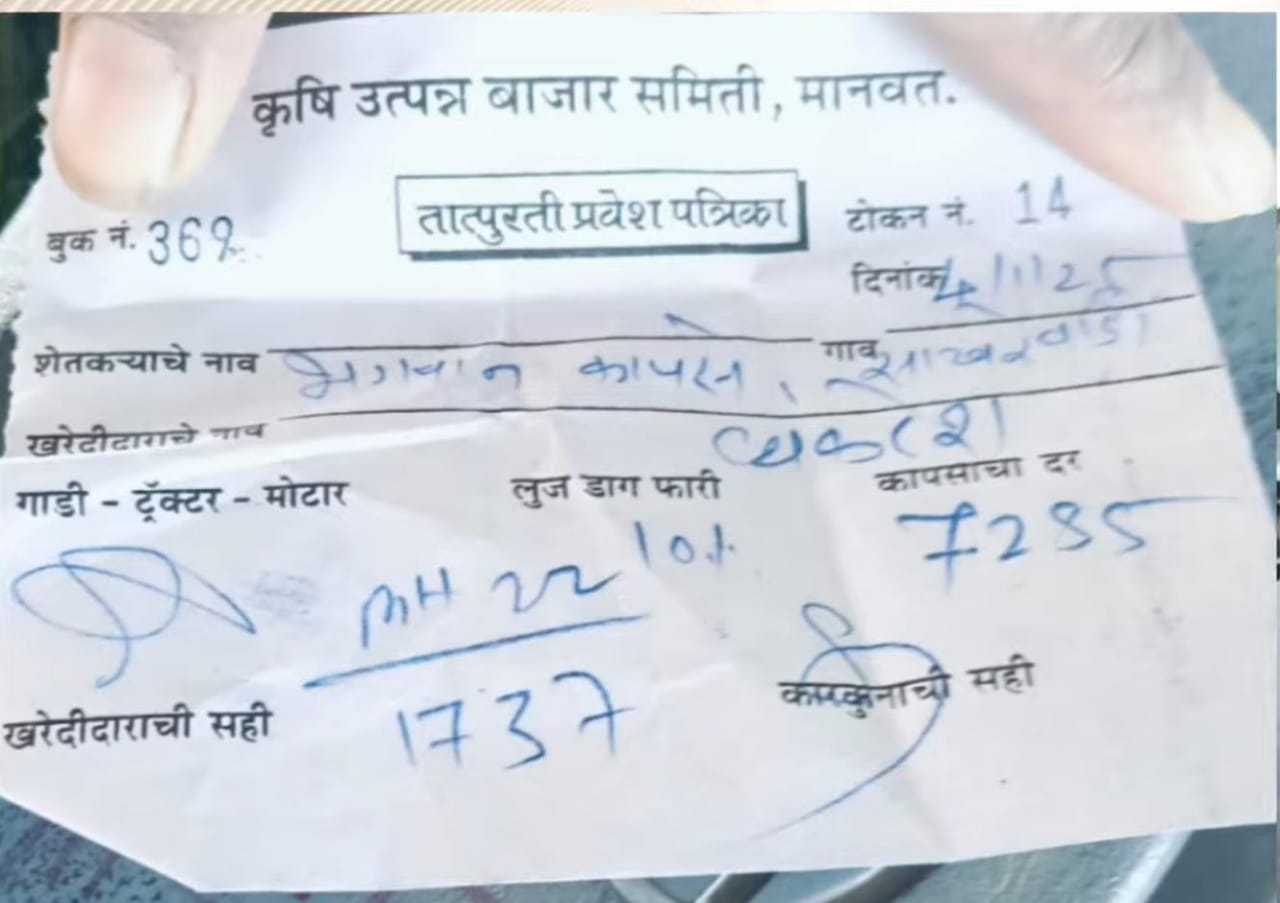 कृषि उत्पन्न बाजार समिती, मानवत.
तात्पुरती प्रवेश पत्रिका
बुक नं. 369
टोकन नं. 14
दिनांक 4/11/25
शेतकऱ्याचे नाव भगवान गाव
खरेदीदाराचे नाव
गाडी - ट्रॅक्टर - मोटार लुज डाग फारी कापसाचा दर
MH 22 10% 7285
1737
खरेदीदाराची सही कारकुनाची सही